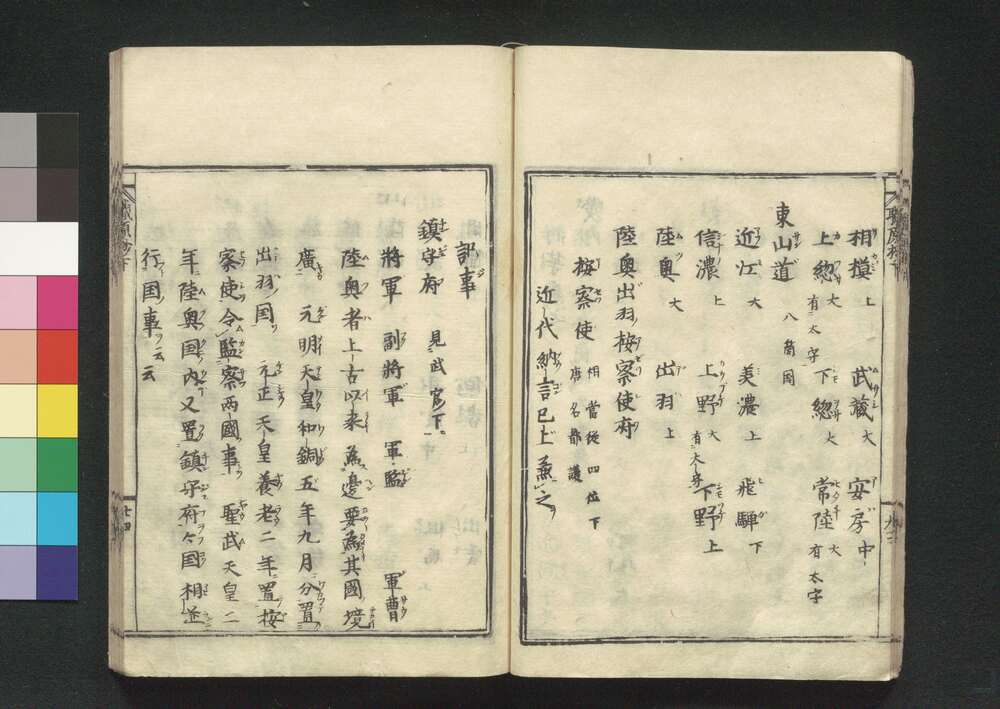 相模上 武藏大 安房中
上総大 有太字 下総大 常陸大 有太字
東山道 八箇国
近江大 美濃上 飛騨下
信濃上 上野大 有太字 下野上
陸奥大 出羽上
陸奥出羽按察使府
按察使 相當從四位下 唐名都護
近代納言已上兼之
記事
鎮守府 見武官下
將軍 副將軍 軍監 軍曹
陸奥者上古以来為邊要為其國境
廣 元明天皇和銅五年九月分置
出羽国 元正天皇養老二年置按
察使令監察両國事 聖武天皇二
年陸奥国内又置鎮守府々国相並
行国事云云